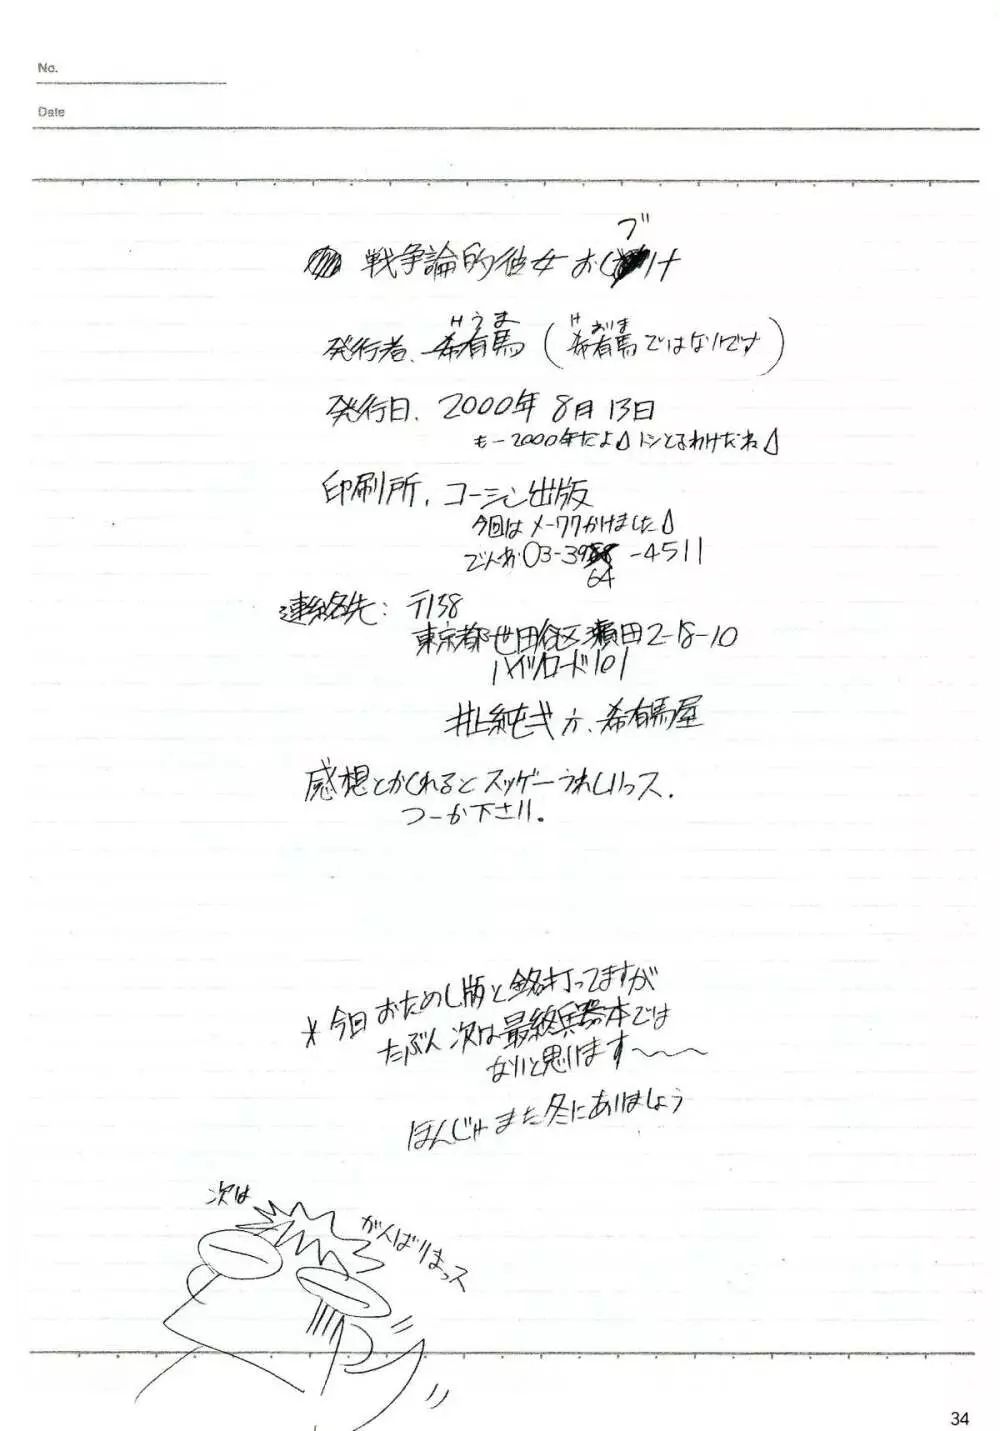 No.
Date
戦争論的彼女 おしブけ
発行者、希有馬(希有馬ではないです)
けうま
けありま
発行日、2000年 8月13日
もー2000年だよ トシとるわけだね
印刷所、コーシン出版
今回はメーワクかけました
でんわ03-39 -4511
64
連絡先: 〒158
東京都世田谷区瀬田2-18-10
ハイツロード101
井上純弌方、希有馬屋
感想とかくれるとスッゲーうれしいっス.
つーか下さい。
*今回おためし版と銘打ってますが
たぶん次は最終兵器本では
ないと思います〜〜〜
ほんじゃまた冬にあいましょう
次は
がんばりまっス
34